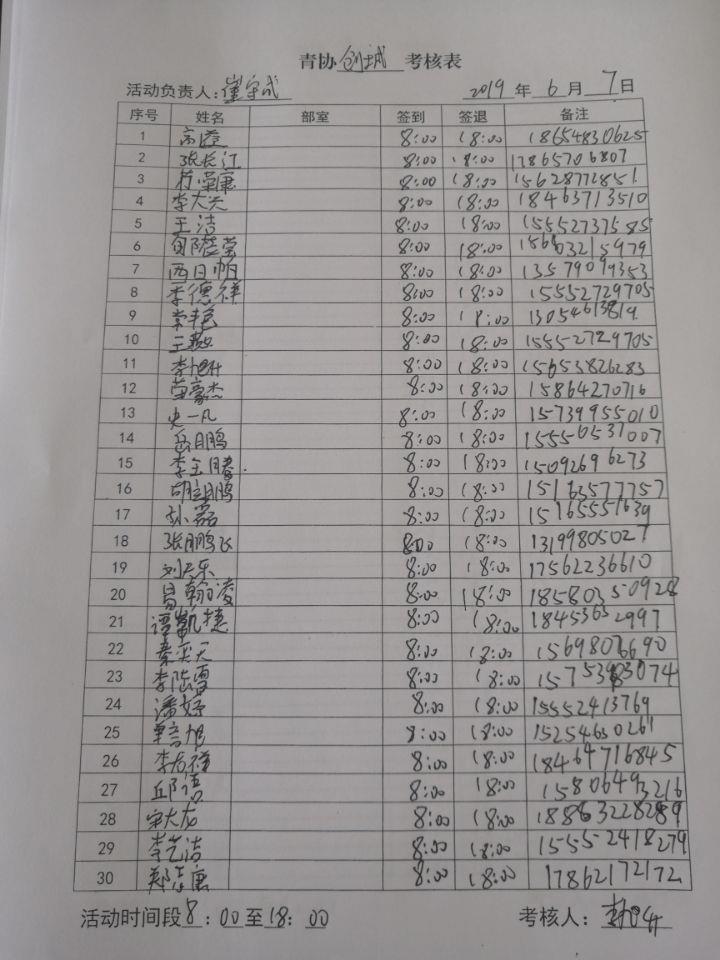 青协 创城 考核表
活动负责人: 崔守成 2019 年 6 月 7 日
序号 姓名 部室 签到 签退 备注
1 8:00 18:00 18654830625
2 张长江 8:00 18:00 17865706807
3 8:00 18:00 15628772851
4 李大兴 8:00 18:00 18463713510
5 王洁 8:00 18:00 15552737585
6 8:00 18:00
7 西日帕 8:00 18:00 13579099353
8 李德祥 8:00 18:00 15552729705
9 常艳 8:00 18:00
10 8:00 18:00 15552729705
11 8:00 18:00 15653826283
12 董豪杰 8:00 18:00 15864270716
13 史一凡 8:00 18:00 15739955010
14 岳鹏 8:00 18:00 15550537007
15 李金腾 8:00 18:00 15092696273
16 8:00 18:00 15163577757
17 孙磊 8:00 18:00 15165551639
18 张鹏飞 8:00 18:00 13199805027
19 刘乐 8:00 18:00 17562236610
20 8:00 18:00 18580350928
21 谭凯捷 8:00 18:00 18453652997
22 秦奕天 8:00 18:00
23 李陆雪 8:00 18:00
24 潘婷 8:00 18:00 15552413769
25 8:00 18:00 15254650261
26 李存祥 8:00 18:00 18464716845
27 邱语 8:00 18:00 15806493216
28 宋大龙 8:00 18:00 18863228289
29 李艺洁 8:00 18:00 15552418279
30 8:00 18:00 17862172172
活动时间段 8 : 00 至 18 : 00 考核人: